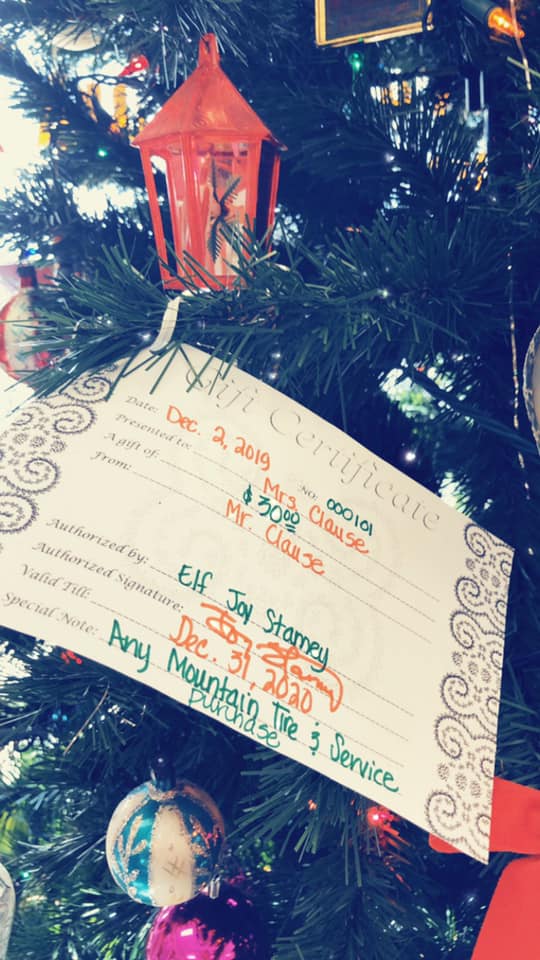 Gift Certificate
Date: Dec. 2, 2019 No: 000101
Presented to: Mrs. Clause
A gift of: $30.00
From: Mr. Clause
Authorized by: Elf Joy Stamey
Authorized Signature: Joy Stamey
Valid Till: Dec. 31, 2020
Special Note: Any Mountain Tire & Service
purchase